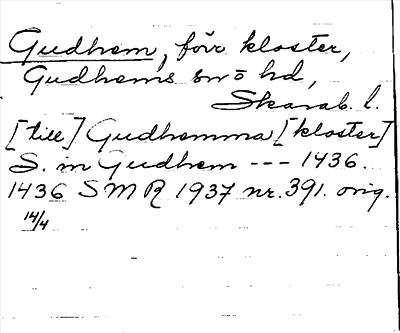 Gudhem, förr kloster,
Gudhems snö hd,
Skarab. l.
[till] Gudhemma [kloster]
S. in Gudhem --- 1436.
1436 SMR 1937 nr. 391. orig.
14/4